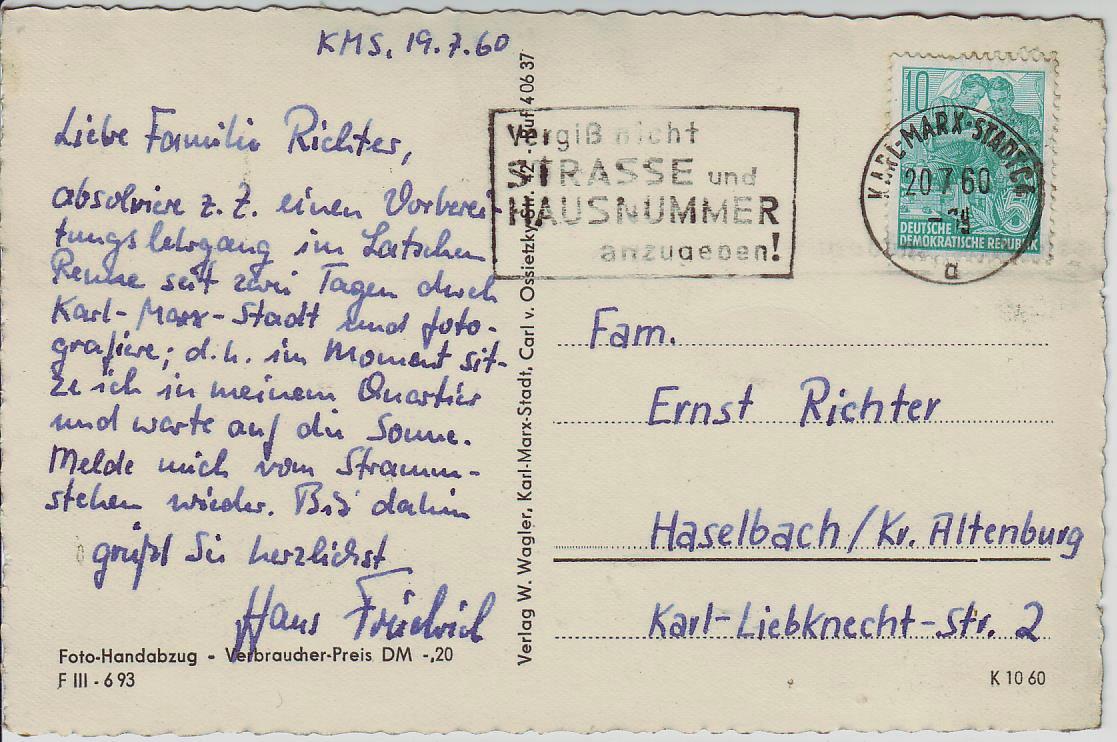 KMS, 19.7.60
Liebe Familie Richter,
absolviere z. Z. einen Vorberei-
tungslehrgang im Latschen
Renne seit zwei Tagen durch
Karl-Marx-Stadt und foto-
grafiere; d. h. im Moment sit-
ze ich in meinem Quartier
und warte auf die Sonne.
Melde mich vom Stramm-
stehen wieder. Bis dahin
grüßt Sie herzlichst
Hans Friedrich
Foto-Handabzug - Verbraucher-Preis DM -,20
F III - 693
Verlag W. Wagler, Karl-Marx-Stadt, Carl v. Ossietzky Ruf 40637
Vergiß nicht
STRASSE und
HAUSNUMMER
anzugeben!
10
DEUTSCHE
DEMOKRATISCHE REPUBLIK
KARL-MARX-STADT
20.7.60
a
Fam.
Ernst Richter
Haselbach / Kr. Altenburg
Karl-Liebknecht-Str. 2
K 10 60